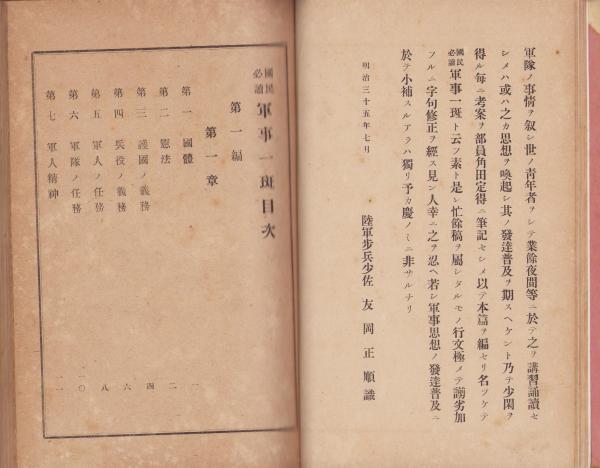 軍隊ノ事情ヲ叙シ世ノ青年者ヲシテ業餘夜間等ニ於テ之ヲ講習誦讀セ
シメハ或ハ之カ思想ヲ喚起シ其ノ發達普及ヲ期スヘケント乃テ少閑ヲ
得ル每ニ考案ヲ部員角田定得ニ筆記セシメ以テ本篇ヲ編セリ名ツケテ
國民必讀軍事一斑ト云フ素ト是レ忙餘稿ヲ屬シタルモノ行文極メテ謭劣加
フルニ字句修正ヲ經ス見ン人幸ニ之ヲ忍ヘ若シ軍事思想ノ發達普及ニ
於テ小補スルアラハ獨リ予カ慶ノミニ非サルナリ
明治三十五年七月
陸軍步兵少佐 友岡正順識
國民必讀軍事一斑目次
第一編
第一章
第一 國體 一
第二 憲法 二
第三 護國ノ義務 四
第四 兵役ノ義務 六
第五 軍人ノ義務 八
第六 軍隊ノ任務
第七 軍人精神